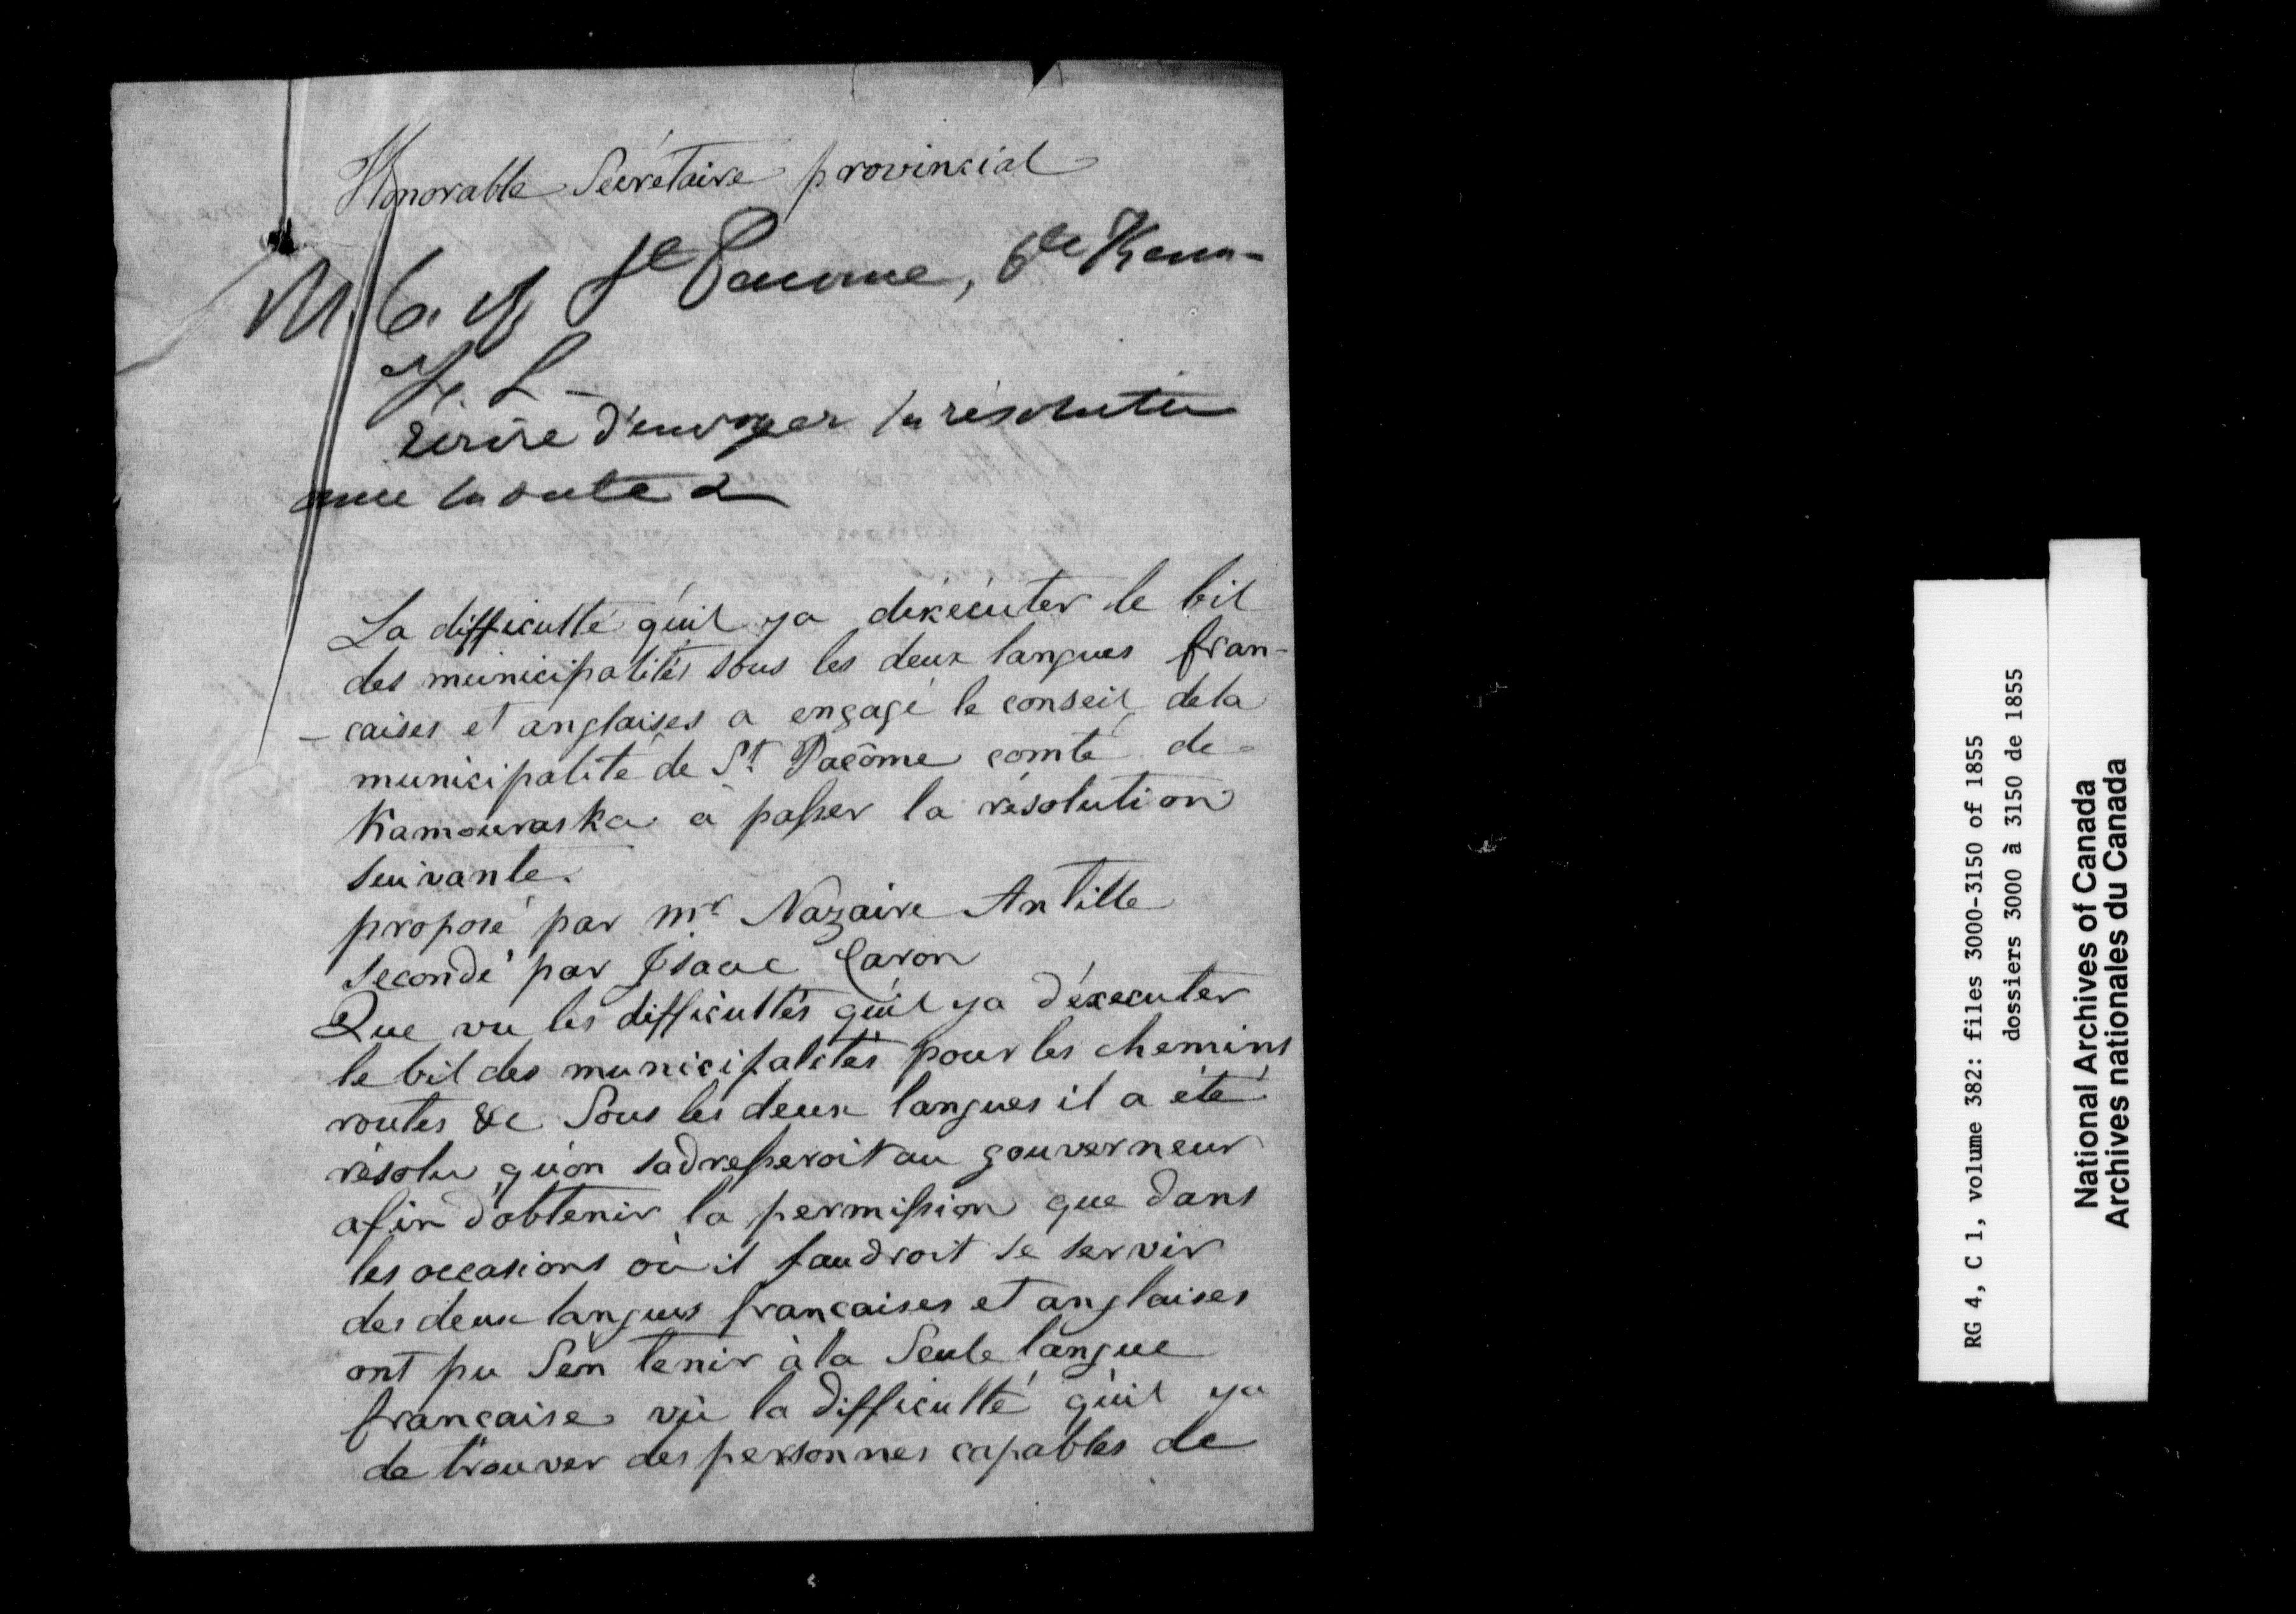 Honorable Secrétaire provincial
M. C. of St Pacome, Cte Kam-
L. C.
Ecrire d'envoyer la résolution
avec la date &
La difficulté qu'il ya déxécuter le bil
des municipalités sous les deux langues fran-
-caises et anglaises a engagé le conseil dela
municipalité de St. Pacôme comté de
Kamouraska à passer la résolution
suivante.
proposé par Mr Nazaire Antille
secondé par Isaac Caron
Que vu les difficultés qu'il ya d'éxecuter
le bil des municipalités pour les chemins
routes &c Sous les deux langues il a été
résolu qu'on sadresseroit au gouverneur
afin d'obtenir la permission que dans
les occasions où il faudroit se servir
des deux langues francaises et anglaises
ont pu S'en tenir à la Seule langue
francaise vù la difficulté qu'il ya
de trouver des personnes capables de
RG 4, C 1, volume 382: files 3000-3150 of 1855
dossiers 3000 à 3150 de 1855
National Archives of Canada
Archives nationales du Canada